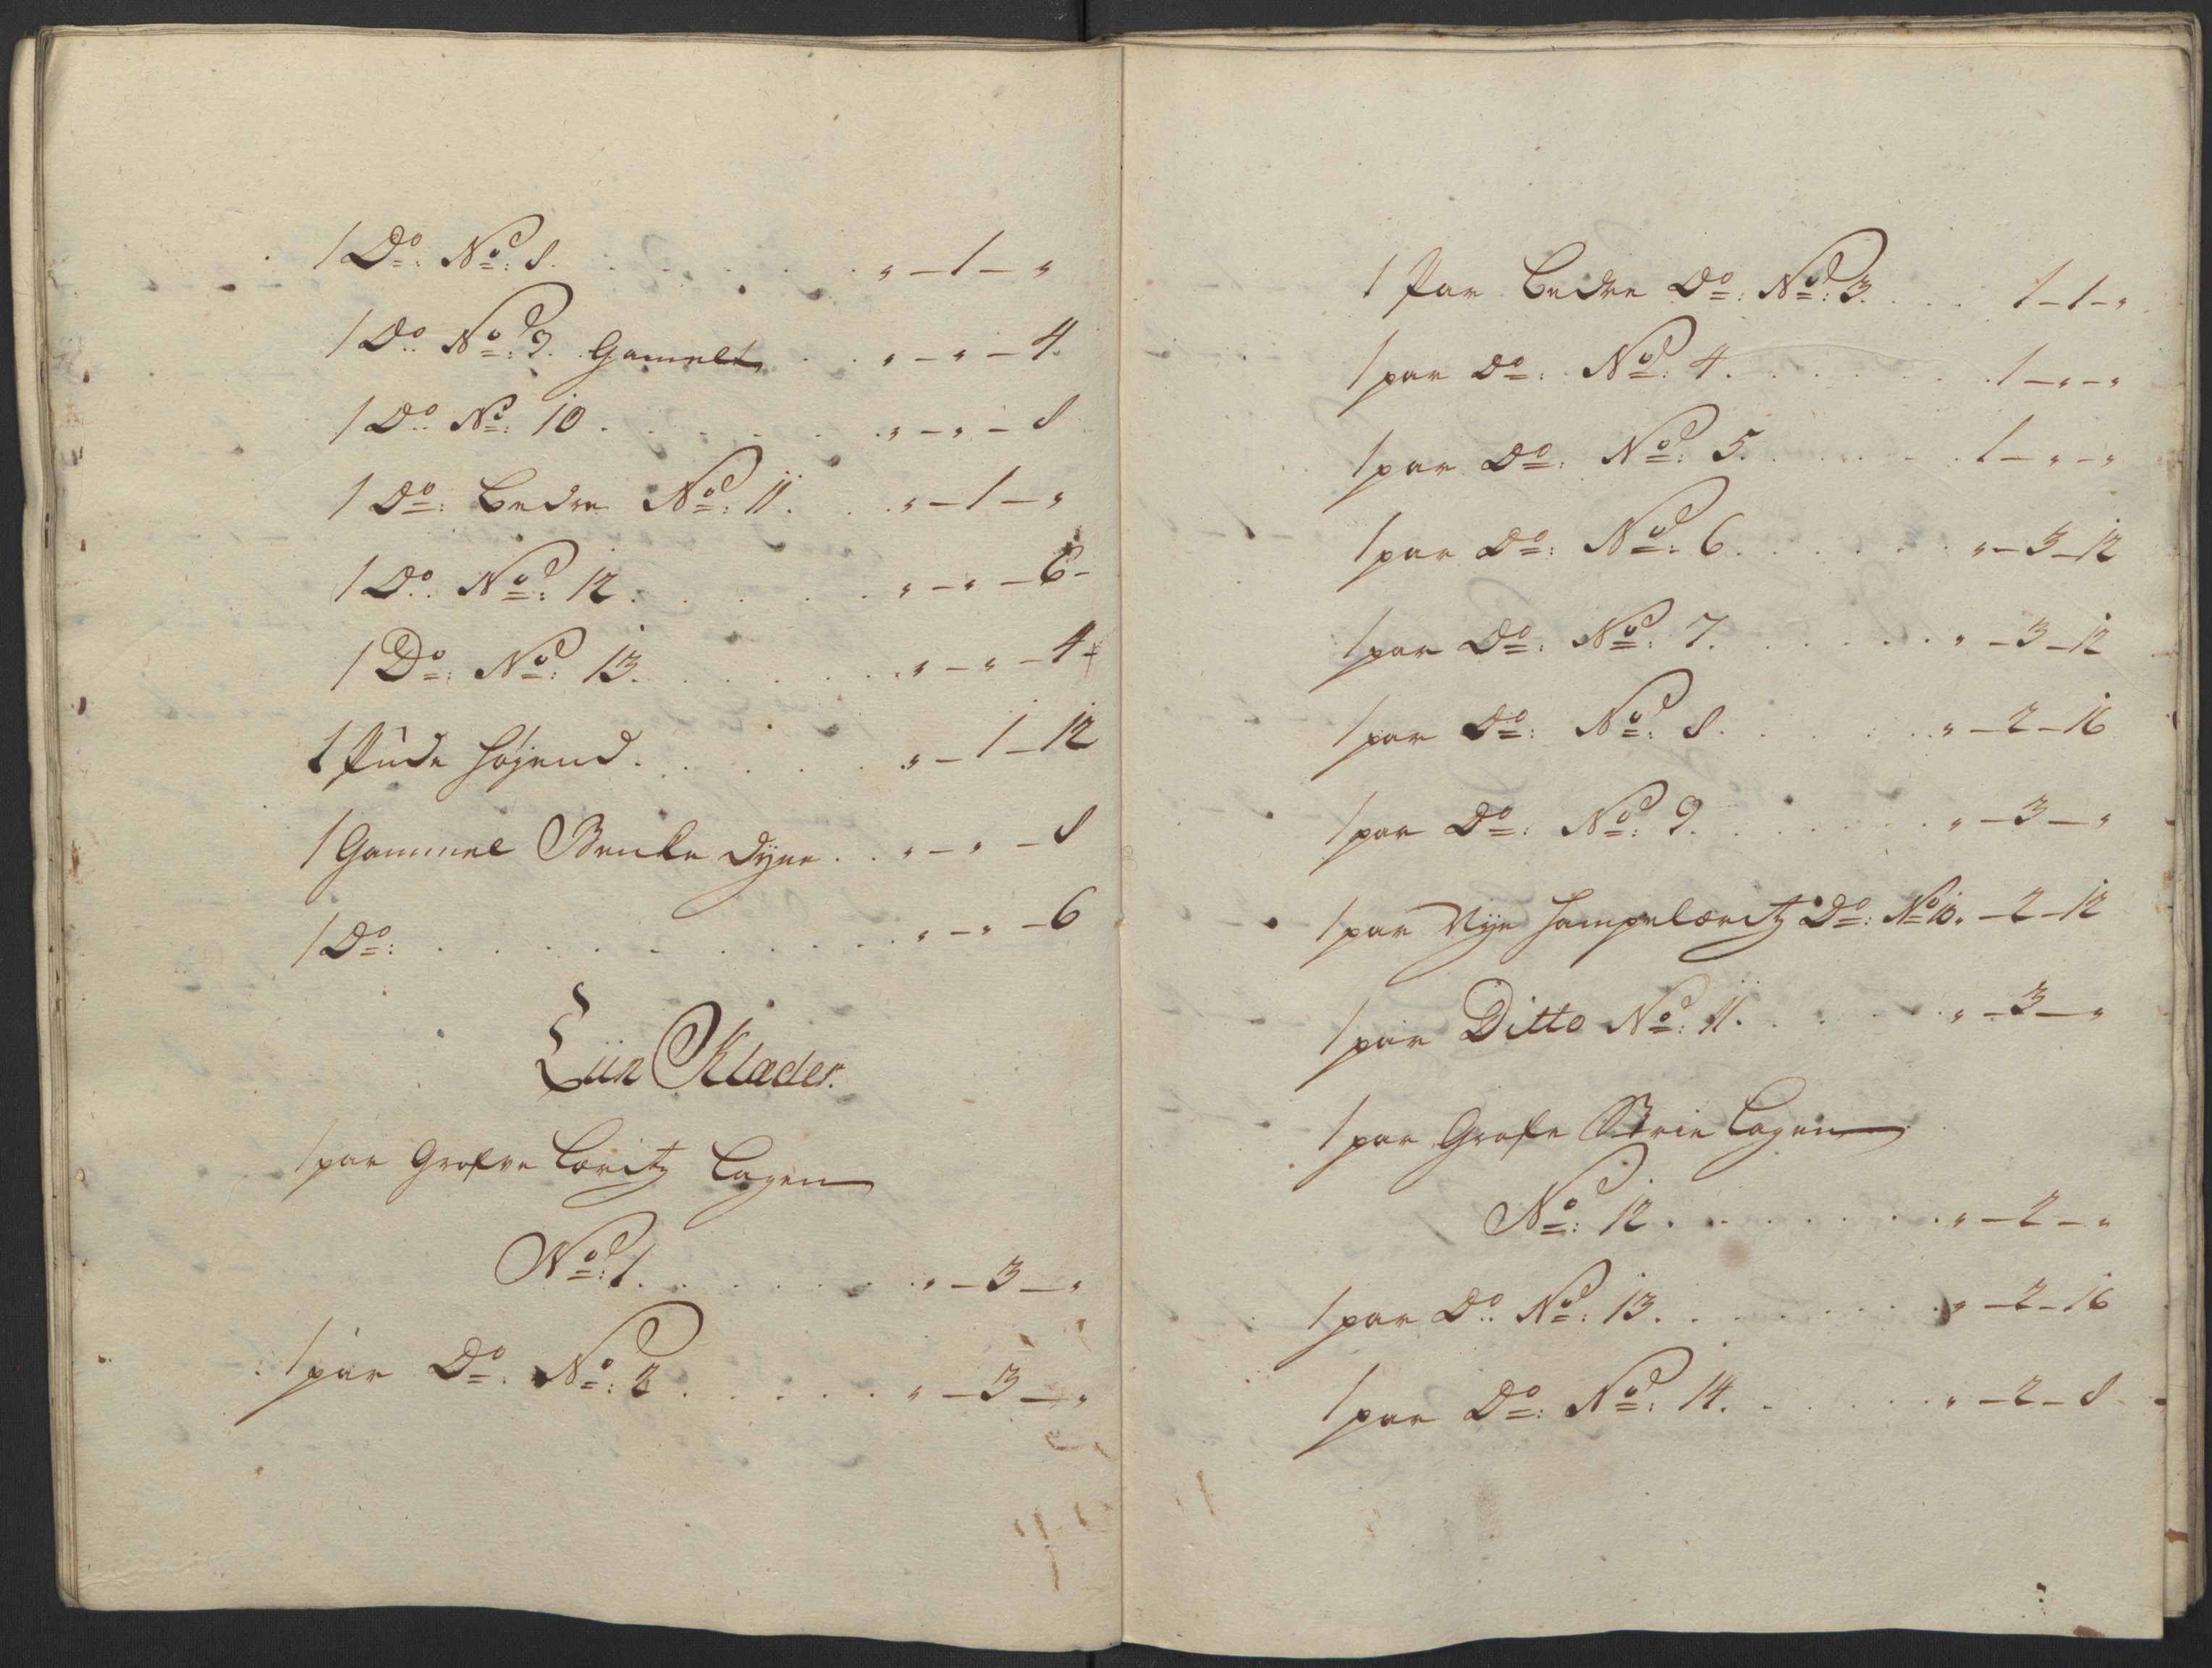 1 Do: No: 8. . . . . „ – 1 – „
1 Do: No: 9. Gamelt . . „ – „ – 4.
1 Do: No: 10 . . . . . „ – „ – 8
1 Do: Bedre No: 11. . . „ – 1 – „
1 Do: No: 12. . . . . „ – „ – 6 –
1 Do: No: 13. . . . . „ – „ – 4 –
1 Pude Højend. . . . . „ – 1 – 12
1 Gammel Benke dyne . . „ – „ – 8
1 Do: . . . . . . . „ – „ – 6
Liin Klæder.
1 par Grofve Læritz Lagen
No: 1. . . . . . „ – 3 – „
1 par Do: No: 2 . . . . „ – 3 – „
1 Par Bedre Do: No: 3. . . 1 – 1 – „
1 par Do: No: 4. . . . . 1 – „ – „
1 par Do: No: 5. . . . . 1 – „ – „
1 par Do: No: 6. . . . . „ – 3 – 12
1 par Do: No: 7. . . . . „ – 3 – 12
1 par Do: No: 8. . . . . „ – 2 – 16
1 par Do: No: 9. . . . . „ – 3 – „
1 par Nye Hampelærritz Do: No 10. „ – 2 – 12
1 par Ditto No: 11. . . . „ – 3 – „
1 par Grofe Strie Lagen
No: 12. . . . . . „ – 2 – „
1 par Do: No: 13. . . . . „ – 2 – 16
1 par Do: No: 14. . . . . „ – 2 – 8